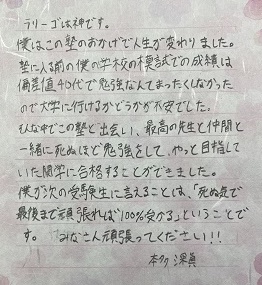 ラリーゴは神です。
僕はこの塾のおかげで人生が変わりました。
塾に入る前の僕の学校の模試での成績は
偏差値40代で勉強なんてまったくしなかった
ので大学に行けるかどうかが不安でした。
そんな中でこの塾と出会い、最高の先生と仲間と
一緒に死ぬほど勉強をして、やっと目指して
いた関学に合格することができました。
僕が次の受験生に言えることは、「死ぬ気で
最後まで頑張れば100%受かる」ということで
す。 みなさん頑張ってください!!